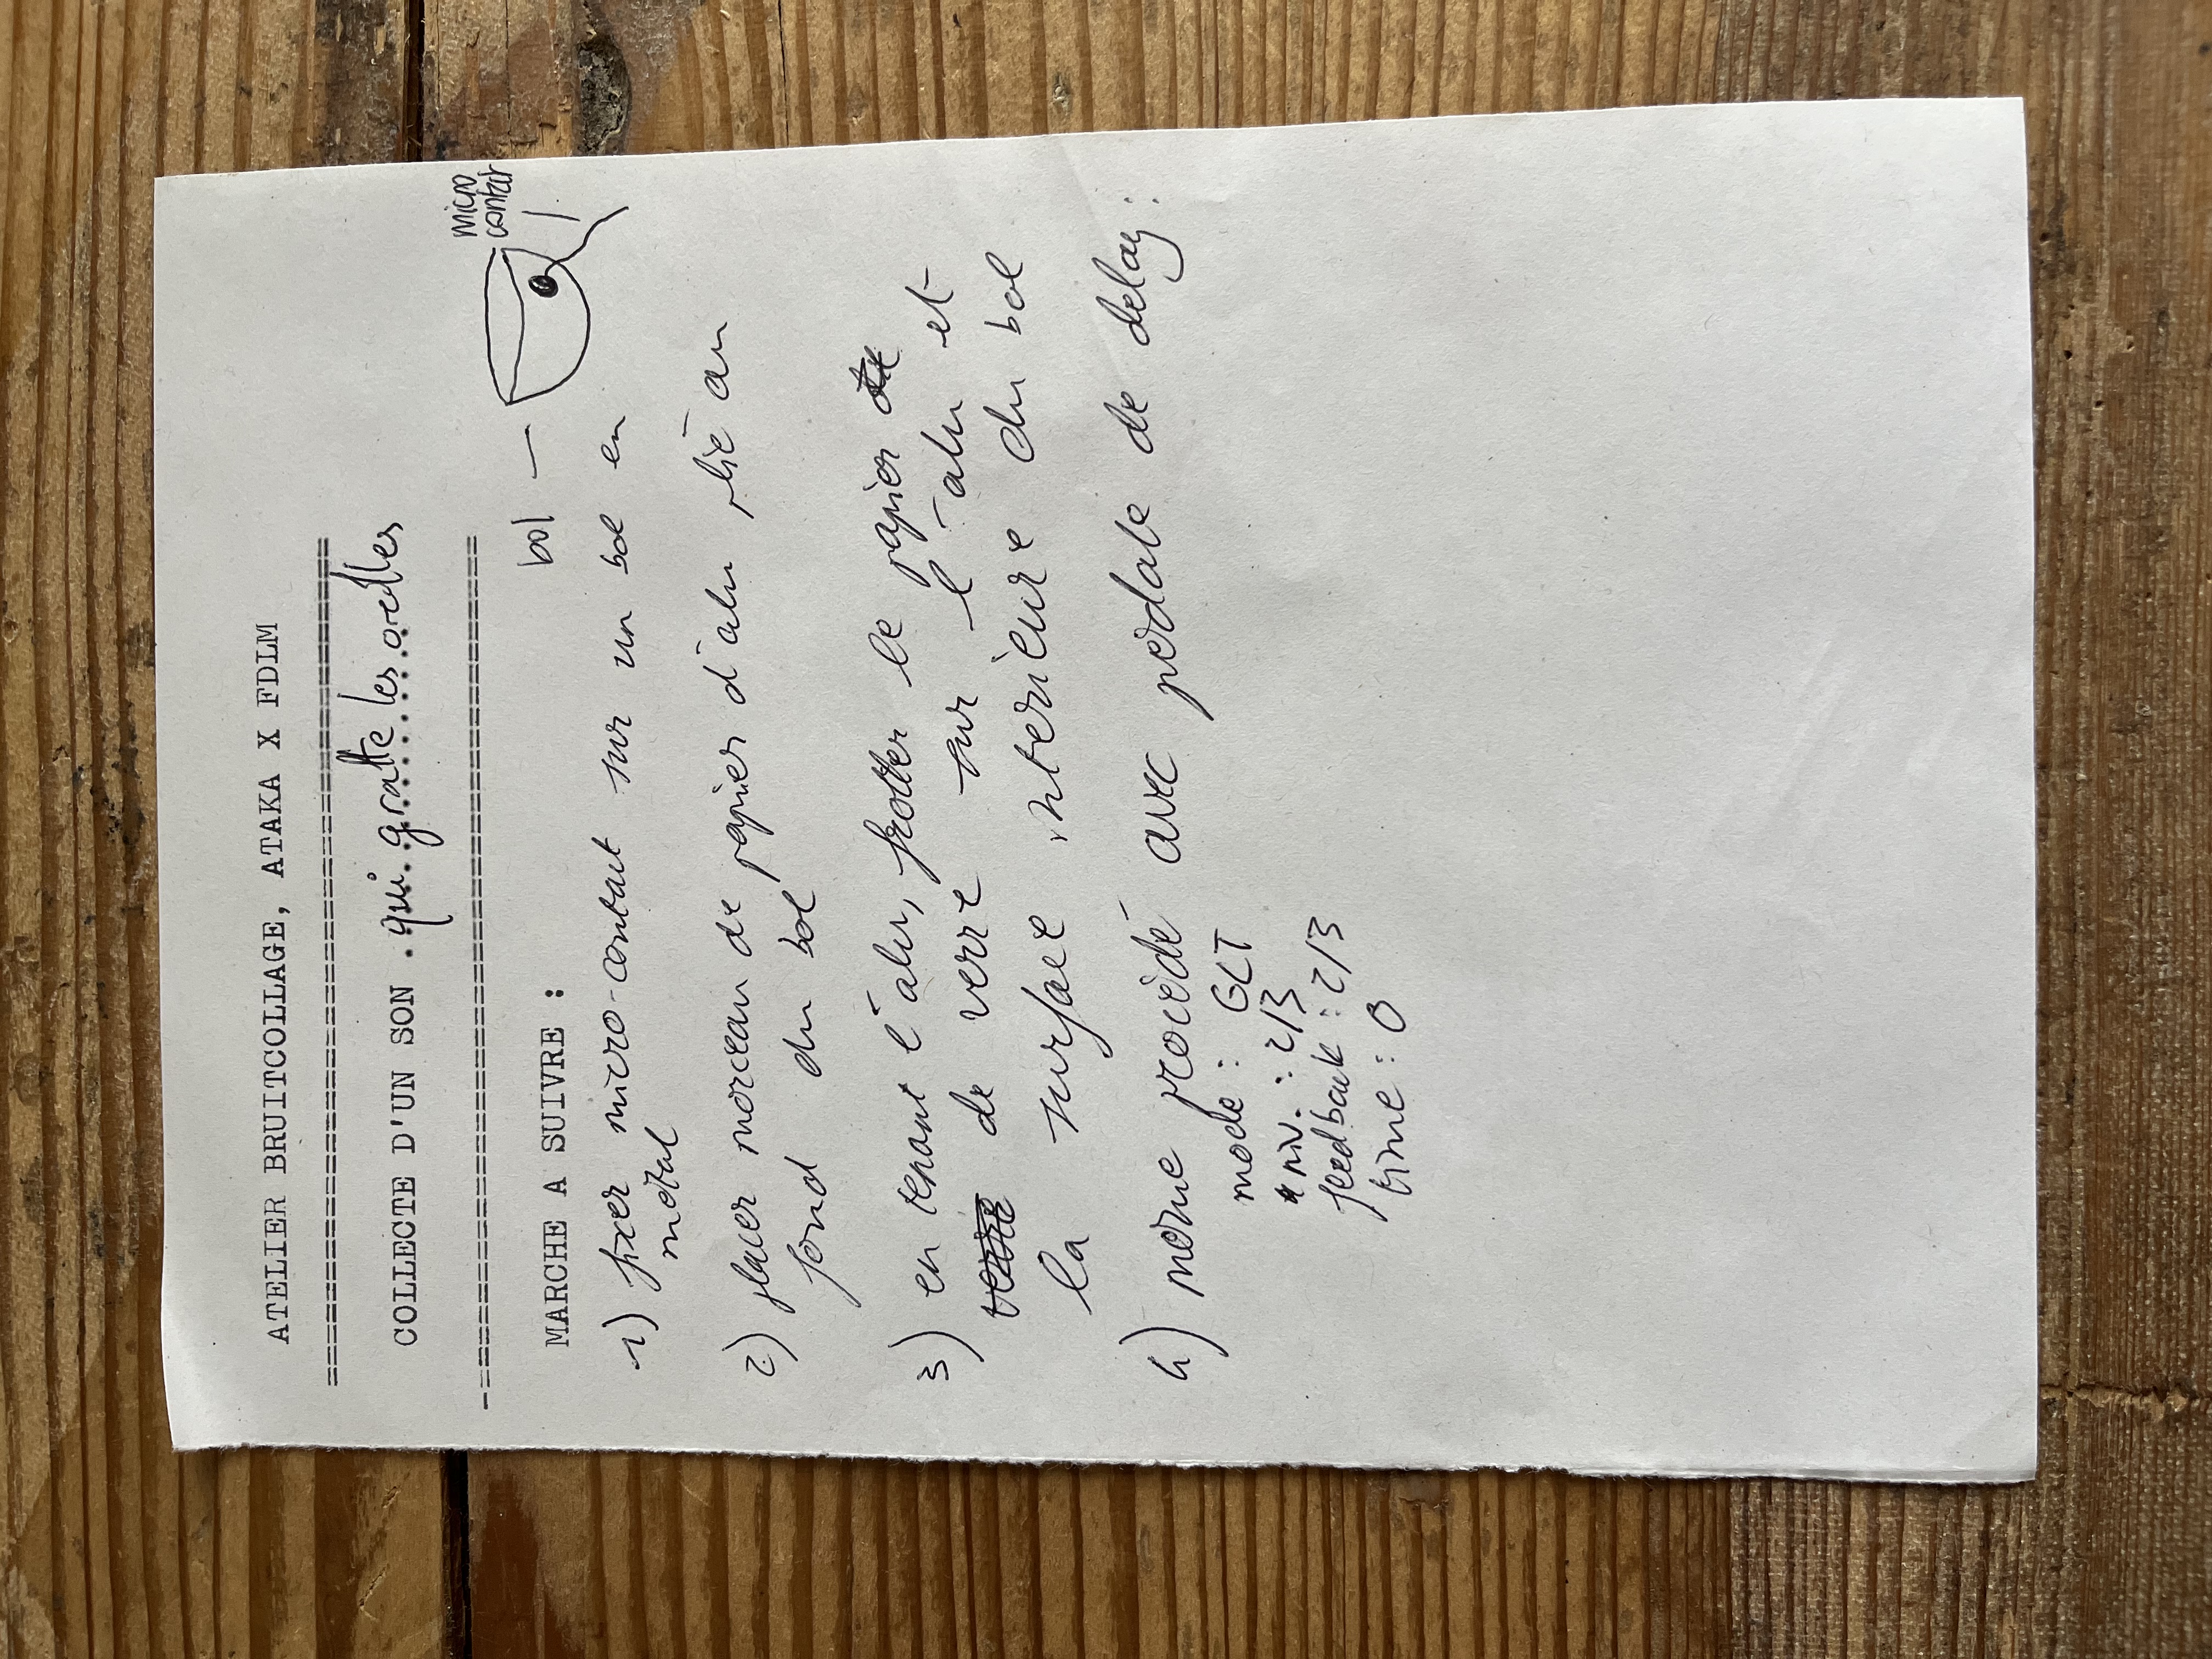 ATELIER BRUITCOLLAGE, ATAKA X FDLM
COLLECTE D'UN SON qui gratte les oreilles
MARCHE A SUIVRE :
bol
micro
contact
1) fixer micro-contact sur un bol en
métal
2) placer morceau de papier d'alu plié au
fond du bol
3) en tenant l'alu, frotter le papier de
verre de verre sur l'alu et
la surface intérieure du bol
4) meme procédé avec pédale de delay :
mode : GLT
niv. : 2/3
feedback : 2/3
time : 0